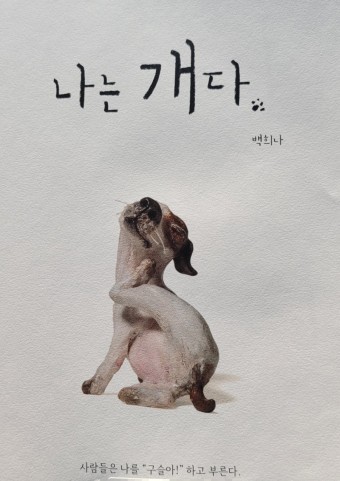 나는 개다.
백희나
사람들은 나를 "구슬아!" 하고 부른다.